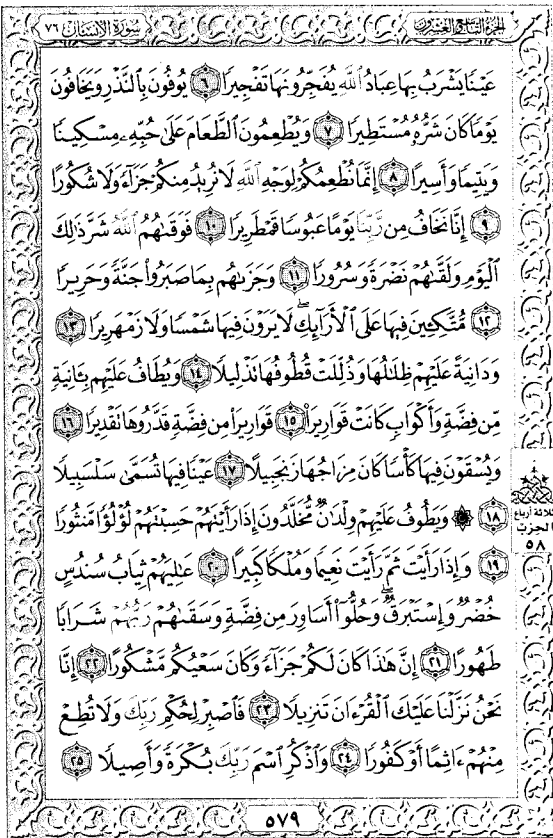 سُورَةُ الإِنسَان ٧٦
الجزء التاسع والعشرون
عَيْنًا يَشْرَبُ بِهَا عِبَادُ اللَّهِ يُفَجِّرُونَهَا تَفْجِيرًا ٦ يُوفُونَ بِالنَّذْرِ وَيَخَافُونَ
يَوْمًا كَانَ شَرُّهُ مُسْتَطِيرًا ٧ وَيُطْعِمُونَ الطَّعَامَ عَلَىٰ حُبِّهِ مِسْكِينًا
وَيَتِيمًا وَأَسِيرًا ٨ إِنَّمَا نُطْعِمُكُمْ لِوَجْهِ اللَّهِ لَا نُرِيدُ مِنكُمْ جَزَآءً وَلَا شُكُورًا
٩ إِنَّا نَخَافُ مِن رَّبِّنَا يَوْمًا عَبُوسًا قَمْطَرِيرًا ١٠ فَوَقَىٰهُمُ اللَّهُ شَرَّ ذَٰلِكَ
الْيَوْمِ وَلَقَّىٰهُمْ نَضْرَةً وَسُرُورًا ١١ وَجَزَىٰهُم بِمَا صَبَرُوا جَنَّةً وَحَرِيرًا
١٢ مُّتَّكِـِٔينَ فِيهَا عَلَى الْأَرَآئِكِ ۖ لَا يَرَوْنَ فِيهَا شَمْسًا وَلَا زَمْهَرِيرًا ١٣
وَدَانِيَةً عَلَيْهِمْ ظِلَٰلُهَا وَذُلِّلَتْ قُطُوفُهَا تَذْلِيلًا ١٤ وَيُطَافُ عَلَيْهِم بِـَٔانِيَةٍ
مِّن فِضَّةٍ وَأَكْوَابٍ كَانَتْ قَوَارِيرَا۠ ١٥ قَوَارِيرَا۟ مِن فِضَّةٍ قَدَّرُوهَا تَقْدِيرًا ١٦
وَيُسْقَوْنَ فِيهَا كَأْسًا كَانَ مِزَاجُهَا زَنجَبِيلًا ١٧ عَيْنًا فِيهَا تُسَمَّىٰ سَلْسَبِيلًا
١٨ ۞ وَيَطُوفُ عَلَيْهِمْ وِلْدَٰنٌ مُّخَلَّدُونَ إِذَا رَأَيْتَهُمْ حَسِبْتَهُمْ لُؤْلُؤًا مَّنثُورًا
١٩ وَإِذَا رَأَيْتَ ثَمَّ رَأَيْتَ نَعِيمًا وَمُلْكًا كَبِيرًا ٢٠ عَٰلِيَهُمْ ثِيَابُ سُندُسٍ
خُضْرٌ وَإِسْتَبْرَقٌ ۖ وَحُلُّوٓا أَسَاوِرَ مِن فِضَّةٍ وَسَقَىٰهُمْ رَبُّهُمْ شَرَابًا
طَهُورًا ٢١ إِنَّ هَٰذَا كَانَ لَكُمْ جَزَآءً وَكَانَ سَعْيُكُم مَّشْكُورًا ٢٢ إِنَّا
نَحْنُ نَزَّلْنَا عَلَيْكَ الْقُرْءَانَ تَنزِيلًا ٢٣ فَاصْبِرْ لِحُكْمِ رَبِّكَ وَلَا تُطِعْ
مِنْهُمْ ءَاثِمًا أَوْ كَفُورًا ٢٤ وَاذْكُرِ اسْمَ رَبِّكَ بُكْرَةً وَأَصِيلًا ٢٥
ثلاثة أرباع
الحزب
٥٨
٥٧٩